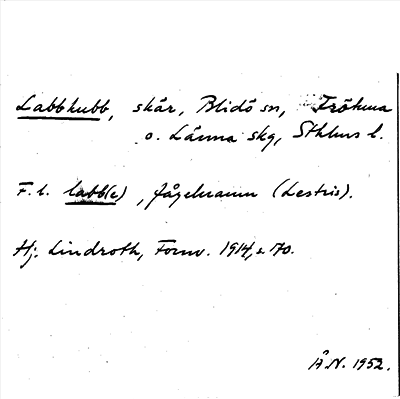 Labbkubb, skär, Blidö sn, Frötuna
o. Länna skg, Sthlms l.
F. l. labb(e), fågelnamn (Lestris).
Hj. Lindroth, Fornv. 1914, s. 170.
Å.N. 1952.